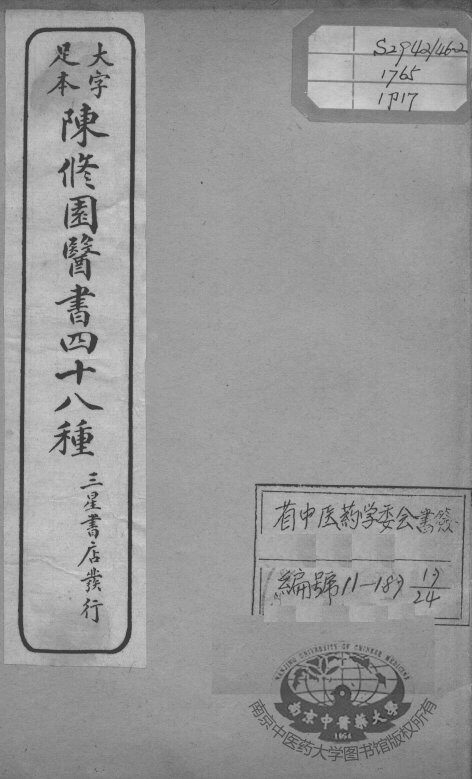 大字
足本
陳修園醫書四十八種
三星書店發行
S2942/46-2
1765
1717
省中医药学委会書籤
編號11-189 19/24
NANJING UNIVERSITY OF CHINESE MEDICINE
南京中醫藥大學
1954
南京中医药大学图书馆版权所有